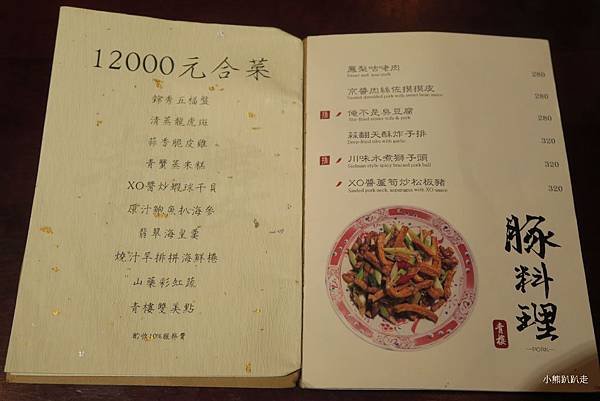 12000元合菜
錦秀五福盤
清蒸龍虎斑
蒜香脆皮雞
青蟹蒸米糕
XO醬炒蝦球干貝
原汁鮑魚扒海參
翡翠海皇羹
燒汁羊排拼海鮮捲
山藥彩虹蔬
青樓雙美點
酌收10%服務費
鳳梨咕咾肉
Sweet and sour pork
280
京醬肉絲佐摸摸皮
Sauted shredded pork with sweet bean sauce
280
俺不是臭豆腐
280
蒜翻天酥炸子排
Deep-fried ribs with garlic
320
川味水煮獅子頭
Sichuan style spicy braised pork ball
320
XO醬蘆筍炒松板豬
Sauted pork neck, asparagus with XO-sauce
320
豚料理
青樓
—PORK—
小熊趴趴走